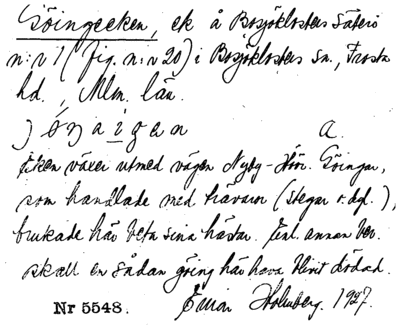 Göingeeken, ek å Bosjöklosters säteri
n:r 1 (fig. n:r 20) i Bosjöklosters sn., Frosta
hd., Mlm. län.
A.
Eken växer utmed vägen Nyby-Hör. Göingar,
som handlade med trävaror (stegar o. dyl.),
brukade här beta sina hästar. Enl. annan ver.
skall en sådan göing här hava blivit dödad.
Nr 5548. Einar Holmberg. 1927.